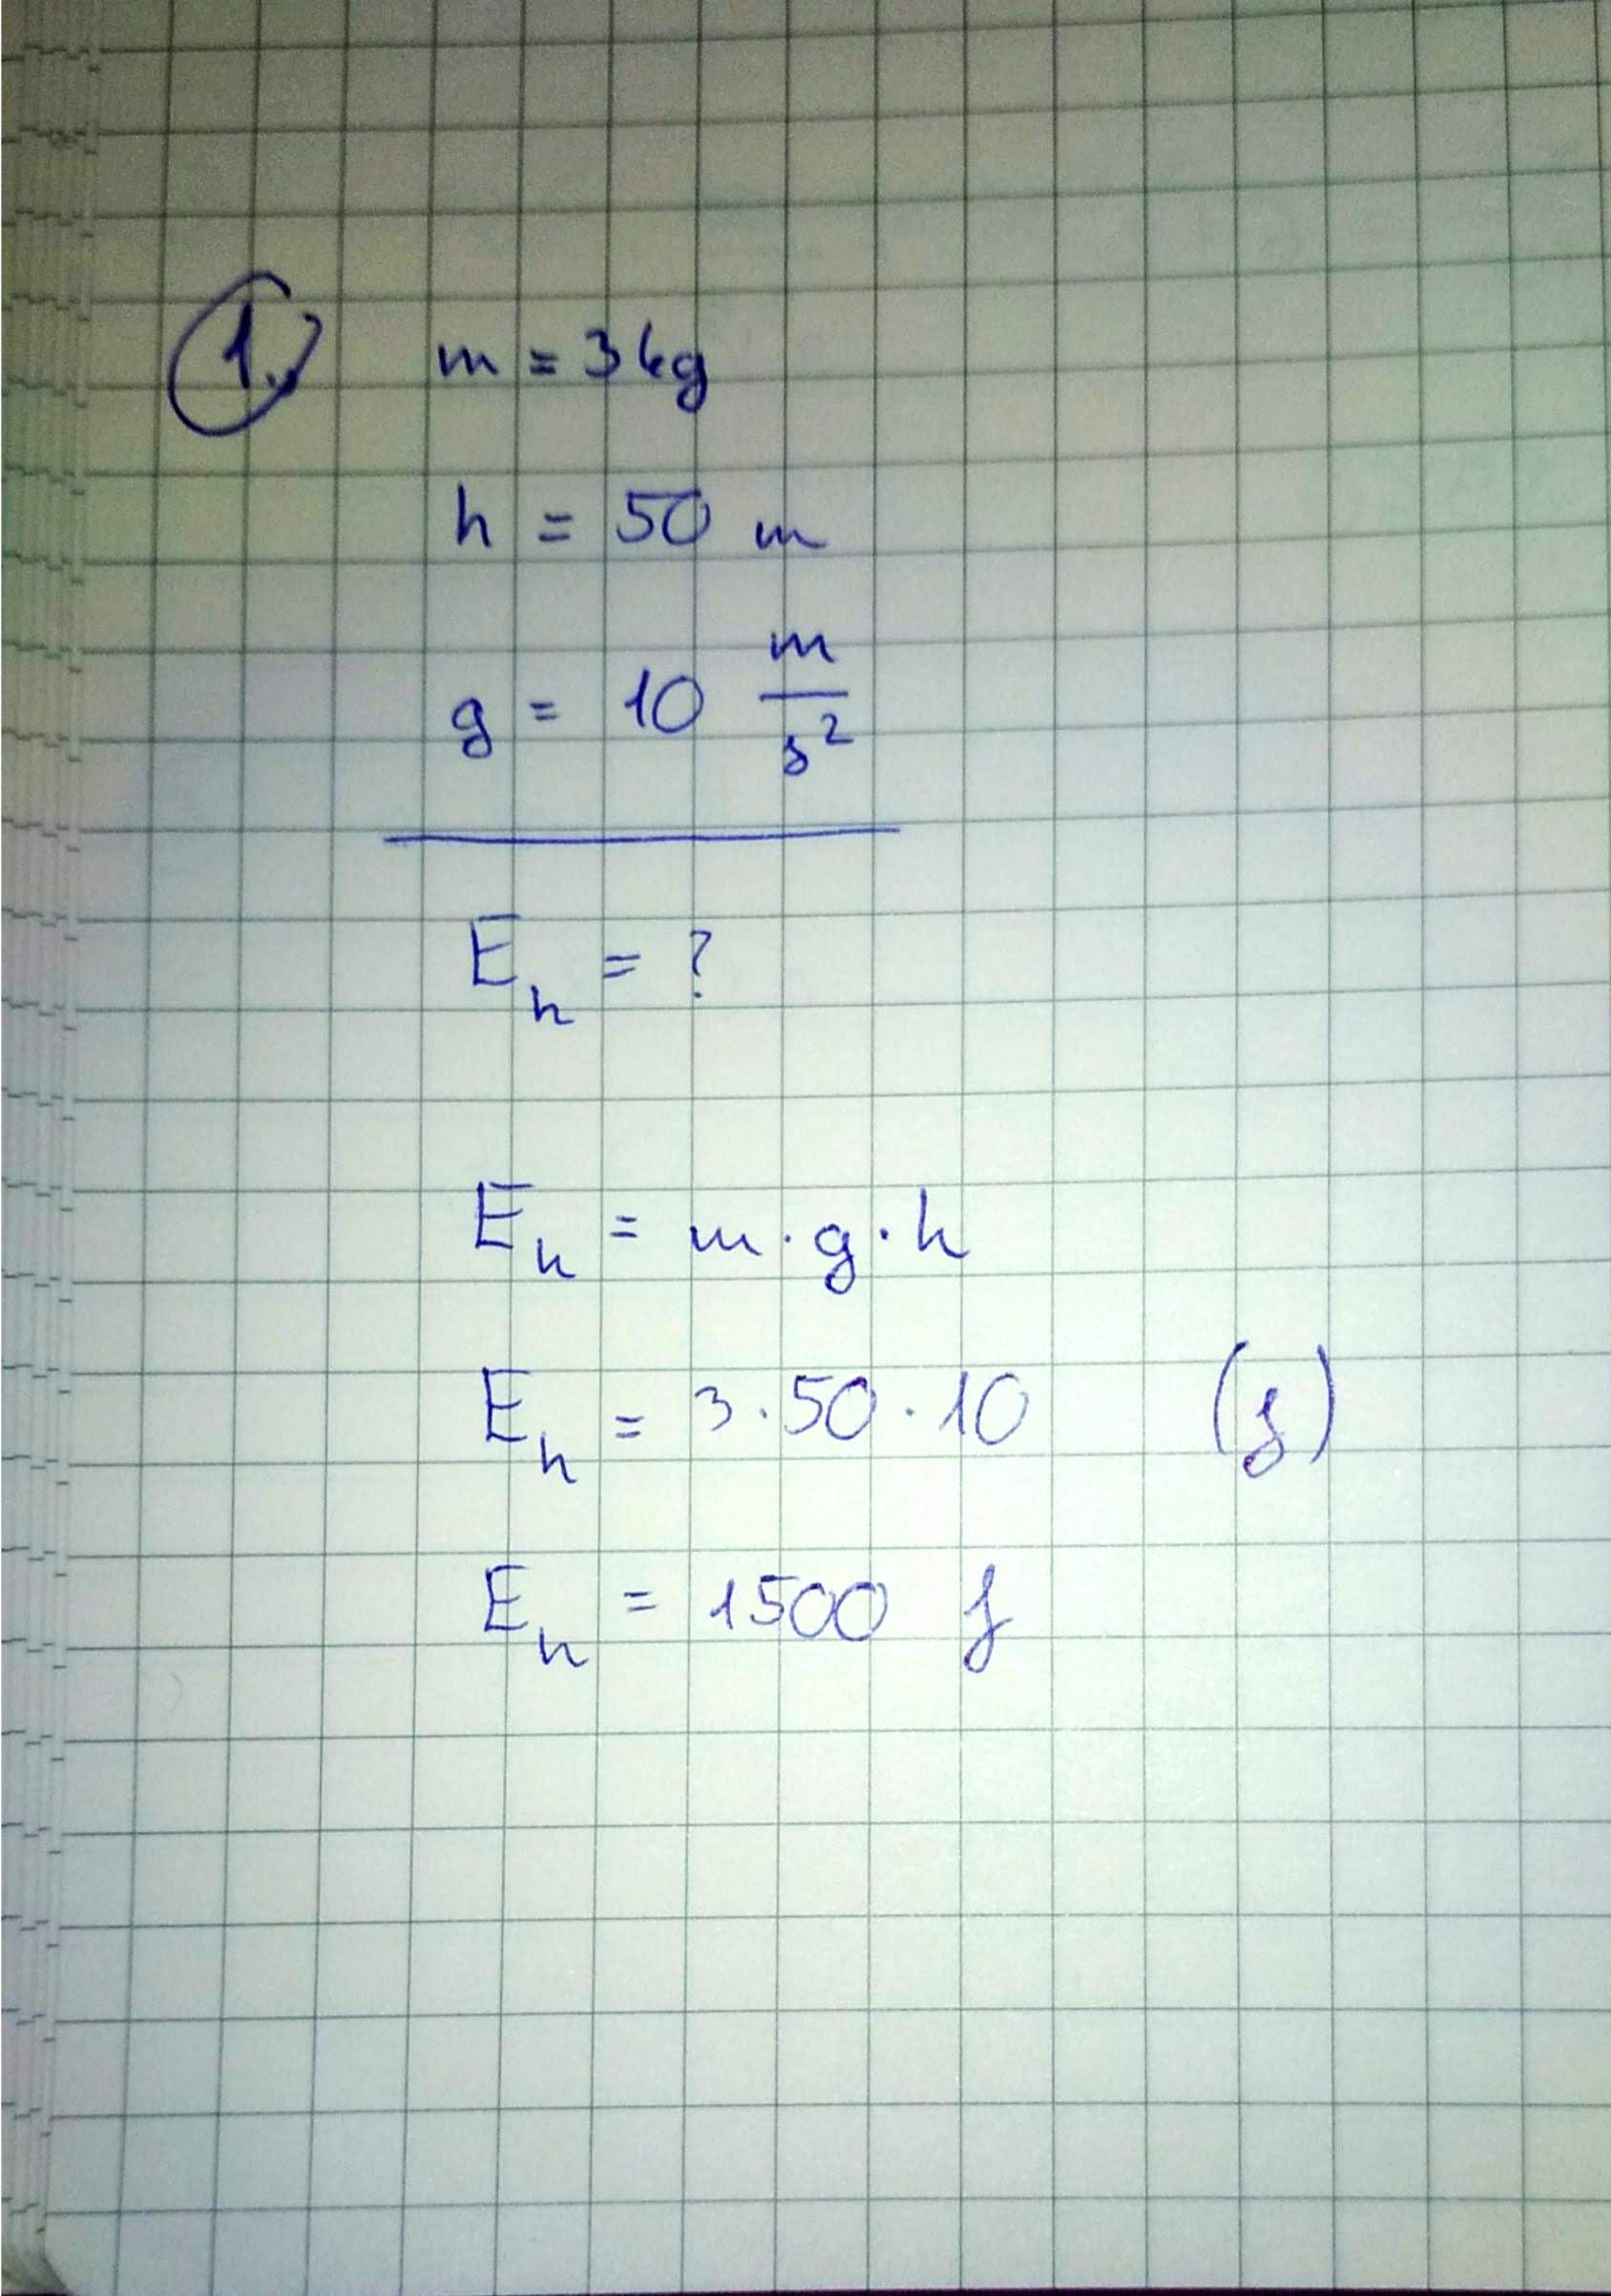 1. m = 3 kg
h = 50 m
g = 10 m/s²
E_h = ?
E_h = m · g · h
E_h = 3 · 50 · 10 (J)
E_h = 1500 J